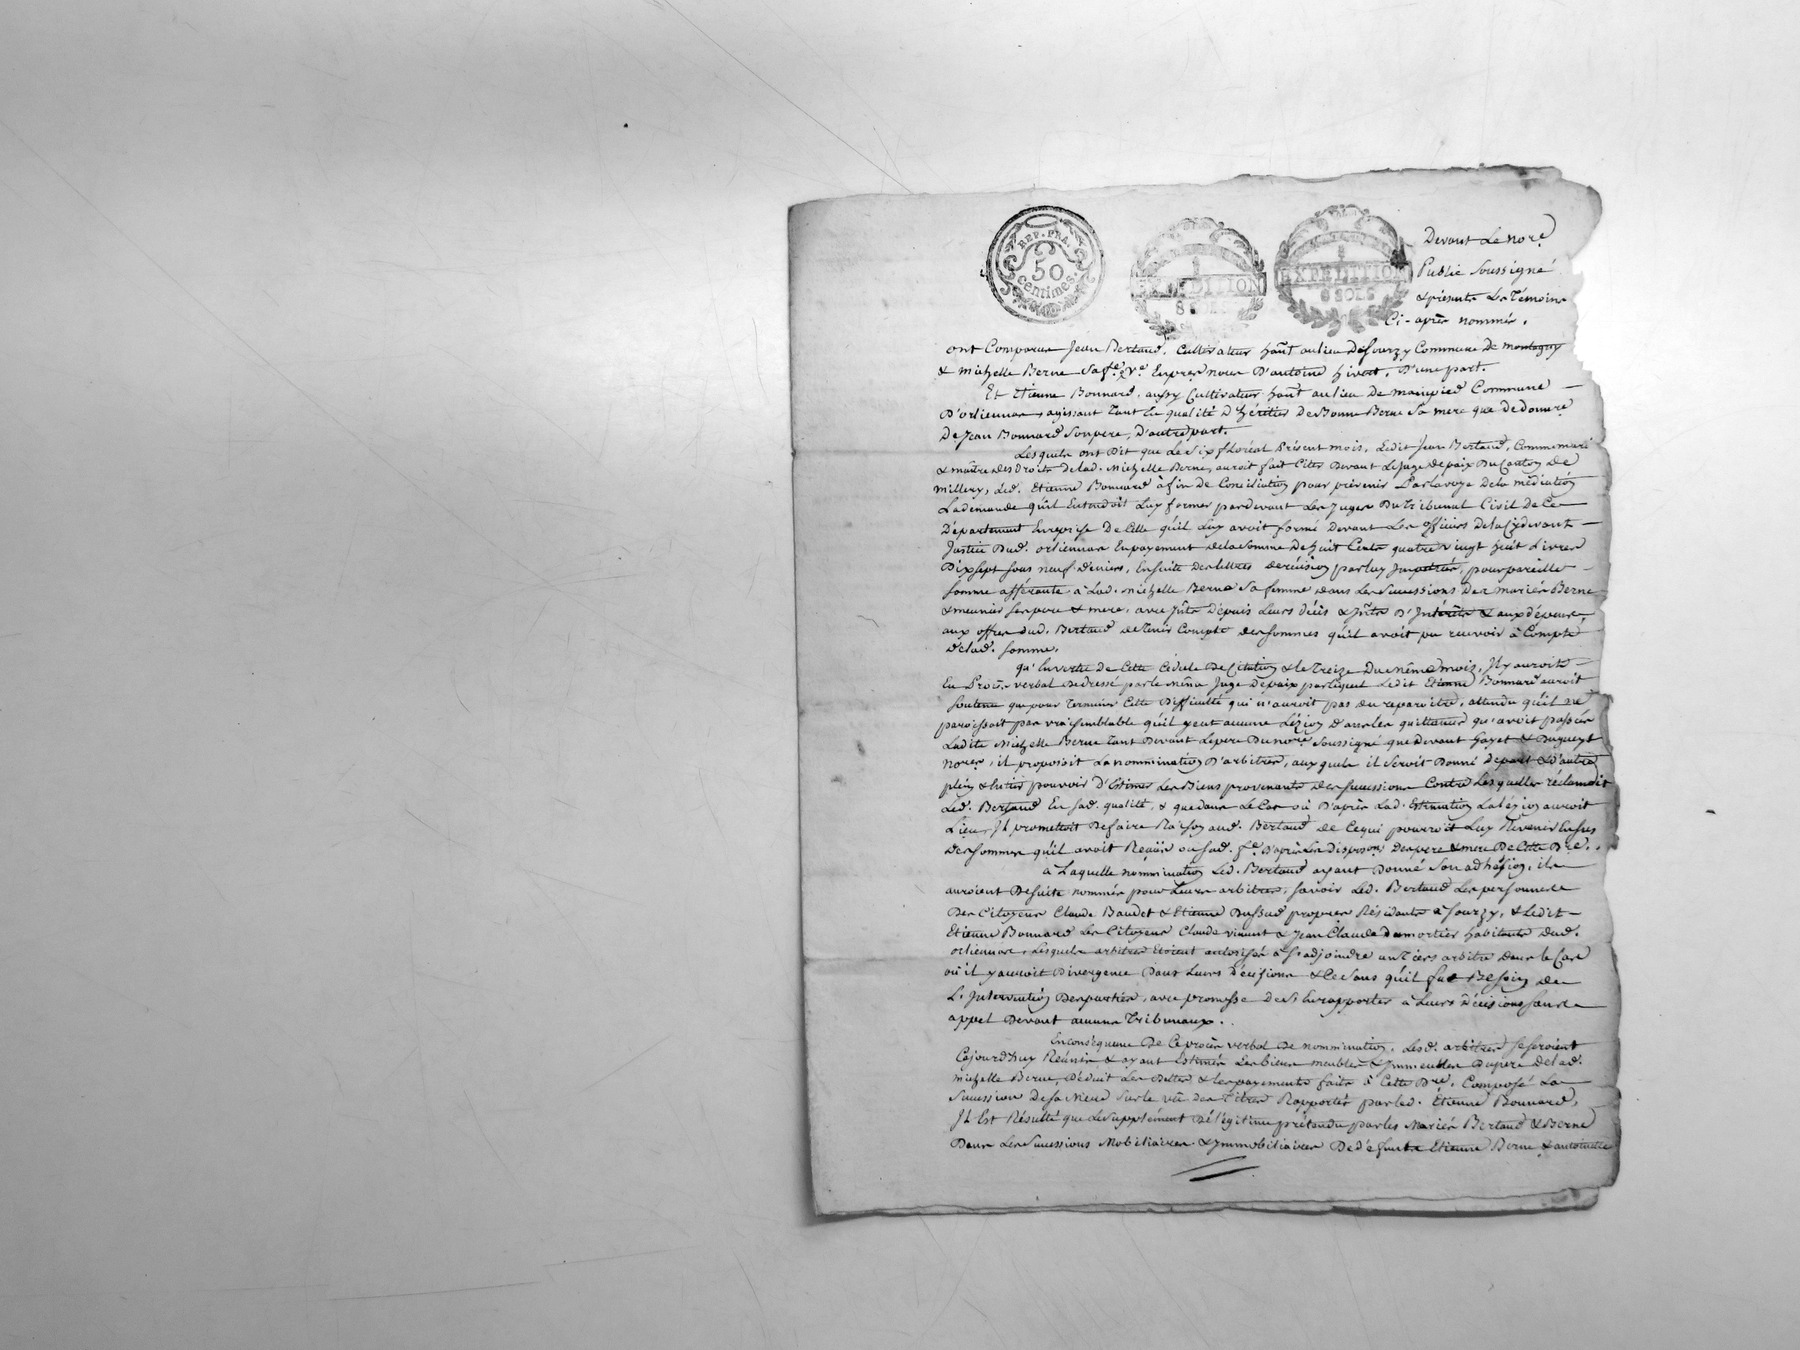 REP. FRA.
50
Centimes.
EXPEDITION
8 SOLS
EXPEDITION
8 SOLS
Devant Le nore
Public Soussigné
& présents Les Témoins
Ci-après nommés.
ont Comparus Jean Bertaud, Cultivateur hant au lieu de Sourzy Commune de montagny
& Michelle Berne Sa fe. ve En pres noces D'antoine hivert, D'une part.
Et Etienne Bonnard, aussy Cultivateur hant au lieu de Commune
D'orliennas, agissant Tant En qualité D'héritier De Bonne Berne Sa mere que de donnre
De Jean Bonnard Son pere, D'autre part.
Lesquels ont Dit que Le Six floréal Présent mois, Ledit Jean Bertaud, Comme mari
& maître des Droits De lad. Michelle Berne, auroit fait Citer Devant Le Juge de paix Du Canton De
Millery, Led. Etienne Bonnard àfin de Conciliation pour prévenir Par la voye de la médiation
La demande qu'il Entendoit Luy former pardevant Les Juges Du Tribunal Civil de Ce
Département En reprise De Celle qu'il Luy avoit formé Devant Les officiers De la Cydevant
Justice Dud. orliennas En payement de la Somme De huit Cents quatre vingt huit Livres
Dix sept Sous neuf deniers, En suite des lettres de récision par luy Impetrées, pour pareille
Somme afférante à Lad. Michelle Berne Sa femme dans Les Successions des mariés Berne
& meunier Ses pere & mere, avec Jnts Depuis Leurs décès & Jnts D'Interêts & aux dépens,
aux offres dud. Bertaud de Tenir Compte des Sommes qu'il avoit pu recevoir à Compte
De lad. Somme.
qu'En vertu de Cette Cédule De Citation & le Treize Du même mois, Il y auroit
Eu Procès verbal De dressé par le même Juge De paix par lequel Ledit Etienne Bonnard auroit
Soutenu que pour Terminer Cette Difficulté qui n'auroit pas du reparoitre, attendu qu'il ne
paroissoit pas vraisemblable qu'il y eut aucune Lézion dans les quittances qu'avoit passées
Ladite Michelle Berne Tant Devant Le pere Du nore Soussigné que Devant &
nores, il proposoit La nommination D'arbitres, auxquels il Seroit Donné de part & D'autre
plein & Entier pouvoir d'Estimer Les Biens provenants Des Successions Contre Lesquelles réclamoit
Led. Bertaud En Sad. qualité, & que dans Le Cas où D'après Lad. Estimation La lézion auroit
Lieu, Il promettoit De faire Raison aud. Bertaud de Ce qui pourroit Luy Revenir En sus
Des Sommes qu'il avoit Reçües ou Sad. fe. D'après Les disposons Des pere & mere De Cette Dre.
à Laquelle nommination Led. Bertaud ayant Donné Son adhésion, ils
auroient De Suite nommés pour Leurs arbitres, Savoir Led. Bertaud Les personnes
Des Citoyens Claude Baudet & Etienne Dussud propres Résidants à Sourzy, & Ledit
Etienne Bonnard Les Citoyens Claude vinant & Jean Claude Dumortier habitants Dud.
orliennas, Lesquels arbitres Etoient autorisés à S'adjoindre un Tiers arbitre dans le Cas
où il y auroit Divergence Dans Leurs Décisions & Ce Sans qu'il fut Besoin De
L'Intervention Des parties, avec promesse de S'En rapporter à Leurs Décisions Sans
appel Devant aucuns Tribunaux.
En conséquence De Ce procès verbal De nommination, Lesd. arbitres Se Seroient
Cejourd'huy Réunis & ayant Estimés Les biens meubles & Immeubles Du pere De lad.
Michelle Berne, Déduit Les Dettes & les payements faits à Cette Dre. Composé La
Succession De Sa Mere Sur le vû Des Titres Rapportés par led. Etienne Bonnard,
Il Est Résulté que Le Supplément De légitime prétendu par les Mariés Bertaud & Berne
Dans Les Successions Mobiliaires & Immobiliaires De défunts Etienne Berne & antoinette